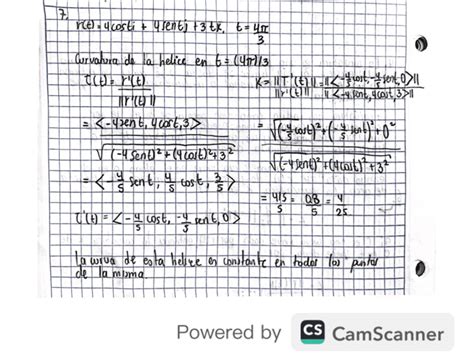 7.
r(t) = 4 cos t i + 4 sen t j + 3tk, t = 4π/3
Curvatura de la helice en t = (4π)/3
T(t) = r'(t) / ||r'(t)||
K = ||T'(t)|| / ||r'(t)|| = ||<-4/5 cos t, -4/5 sen t, 0>|| / ||<-4 sen t, 4 cos t, 3>||
= <-4 sen t, 4 cos t, 3> / √(-4 sen t)² + (4 cos t)² + 3²
= √(-4/5 cos t)² + (-4/5 sen t)² + 0² / √(-4 sen t)² + (4 cos t)² + 3²
= <-4/5 sen t, 4/5 cos t, 3/5>
= 4/5 / 5 = 0.8/5 = 4/25
T'(t) = <-4/5 cos t, -4/5 sen t, 0>
La curva de esta helice es constante en todos los puntos
de la misma.
Powered by CS CamScanner